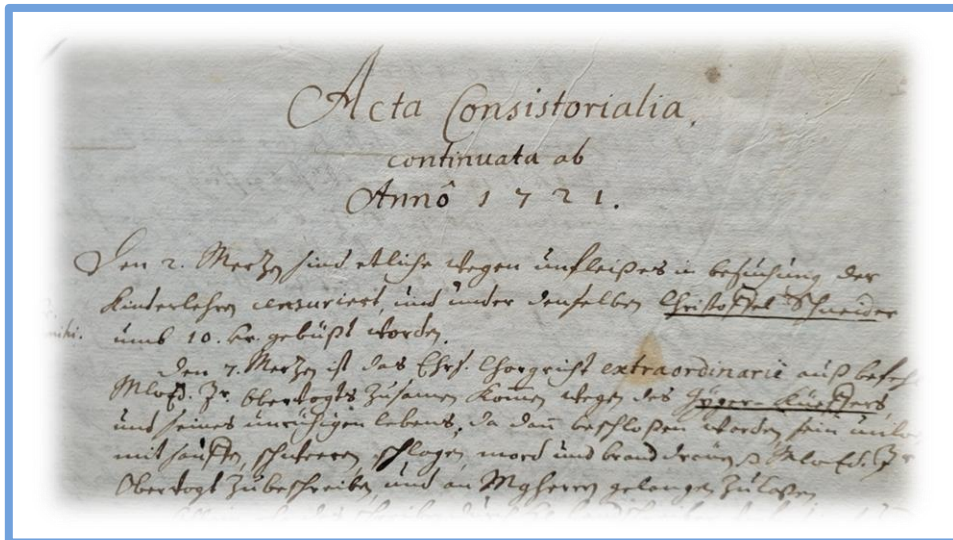 Acta Consistorialia.
continuata ab
Annô 1721.
Den 2. Mertzen sind etliche wegen unfleißes in besuchung der
Kinterlehren censuriert, und unter denselben Christoffel Schneider
umb 10. bz. gebüßt worden.
Den 7. Mertzen ist das Ehrs. Chorgricht extraordinarie auß
Obervogts zusamen komen wegen des
und seines unrühigen lebens, da dan beschloßen worden sein
mit sauffen, schweren, schlagen, mord und brand
Obervogt zubeschreiben, und an Mgherren gelangen zulaßen